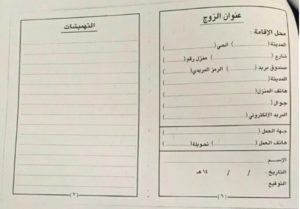 عنوان الزوج
محل الإقامة :
المدينة ( ) الحي ( )
شارع ( ) منزل رقم ( )
صندوق بريد ( ) الرمز البريدي ( )
المدينة ( )
هاتف المنزل ( )
جوال ( )
البريد الإلكتروني ( )
جهة العمل ( )
هاتف العمل ( ) تحويلة ( )
الإســم
التاريخ / / ١٤ هـ
التوقيع
(٦)
التهميشات
(٧)